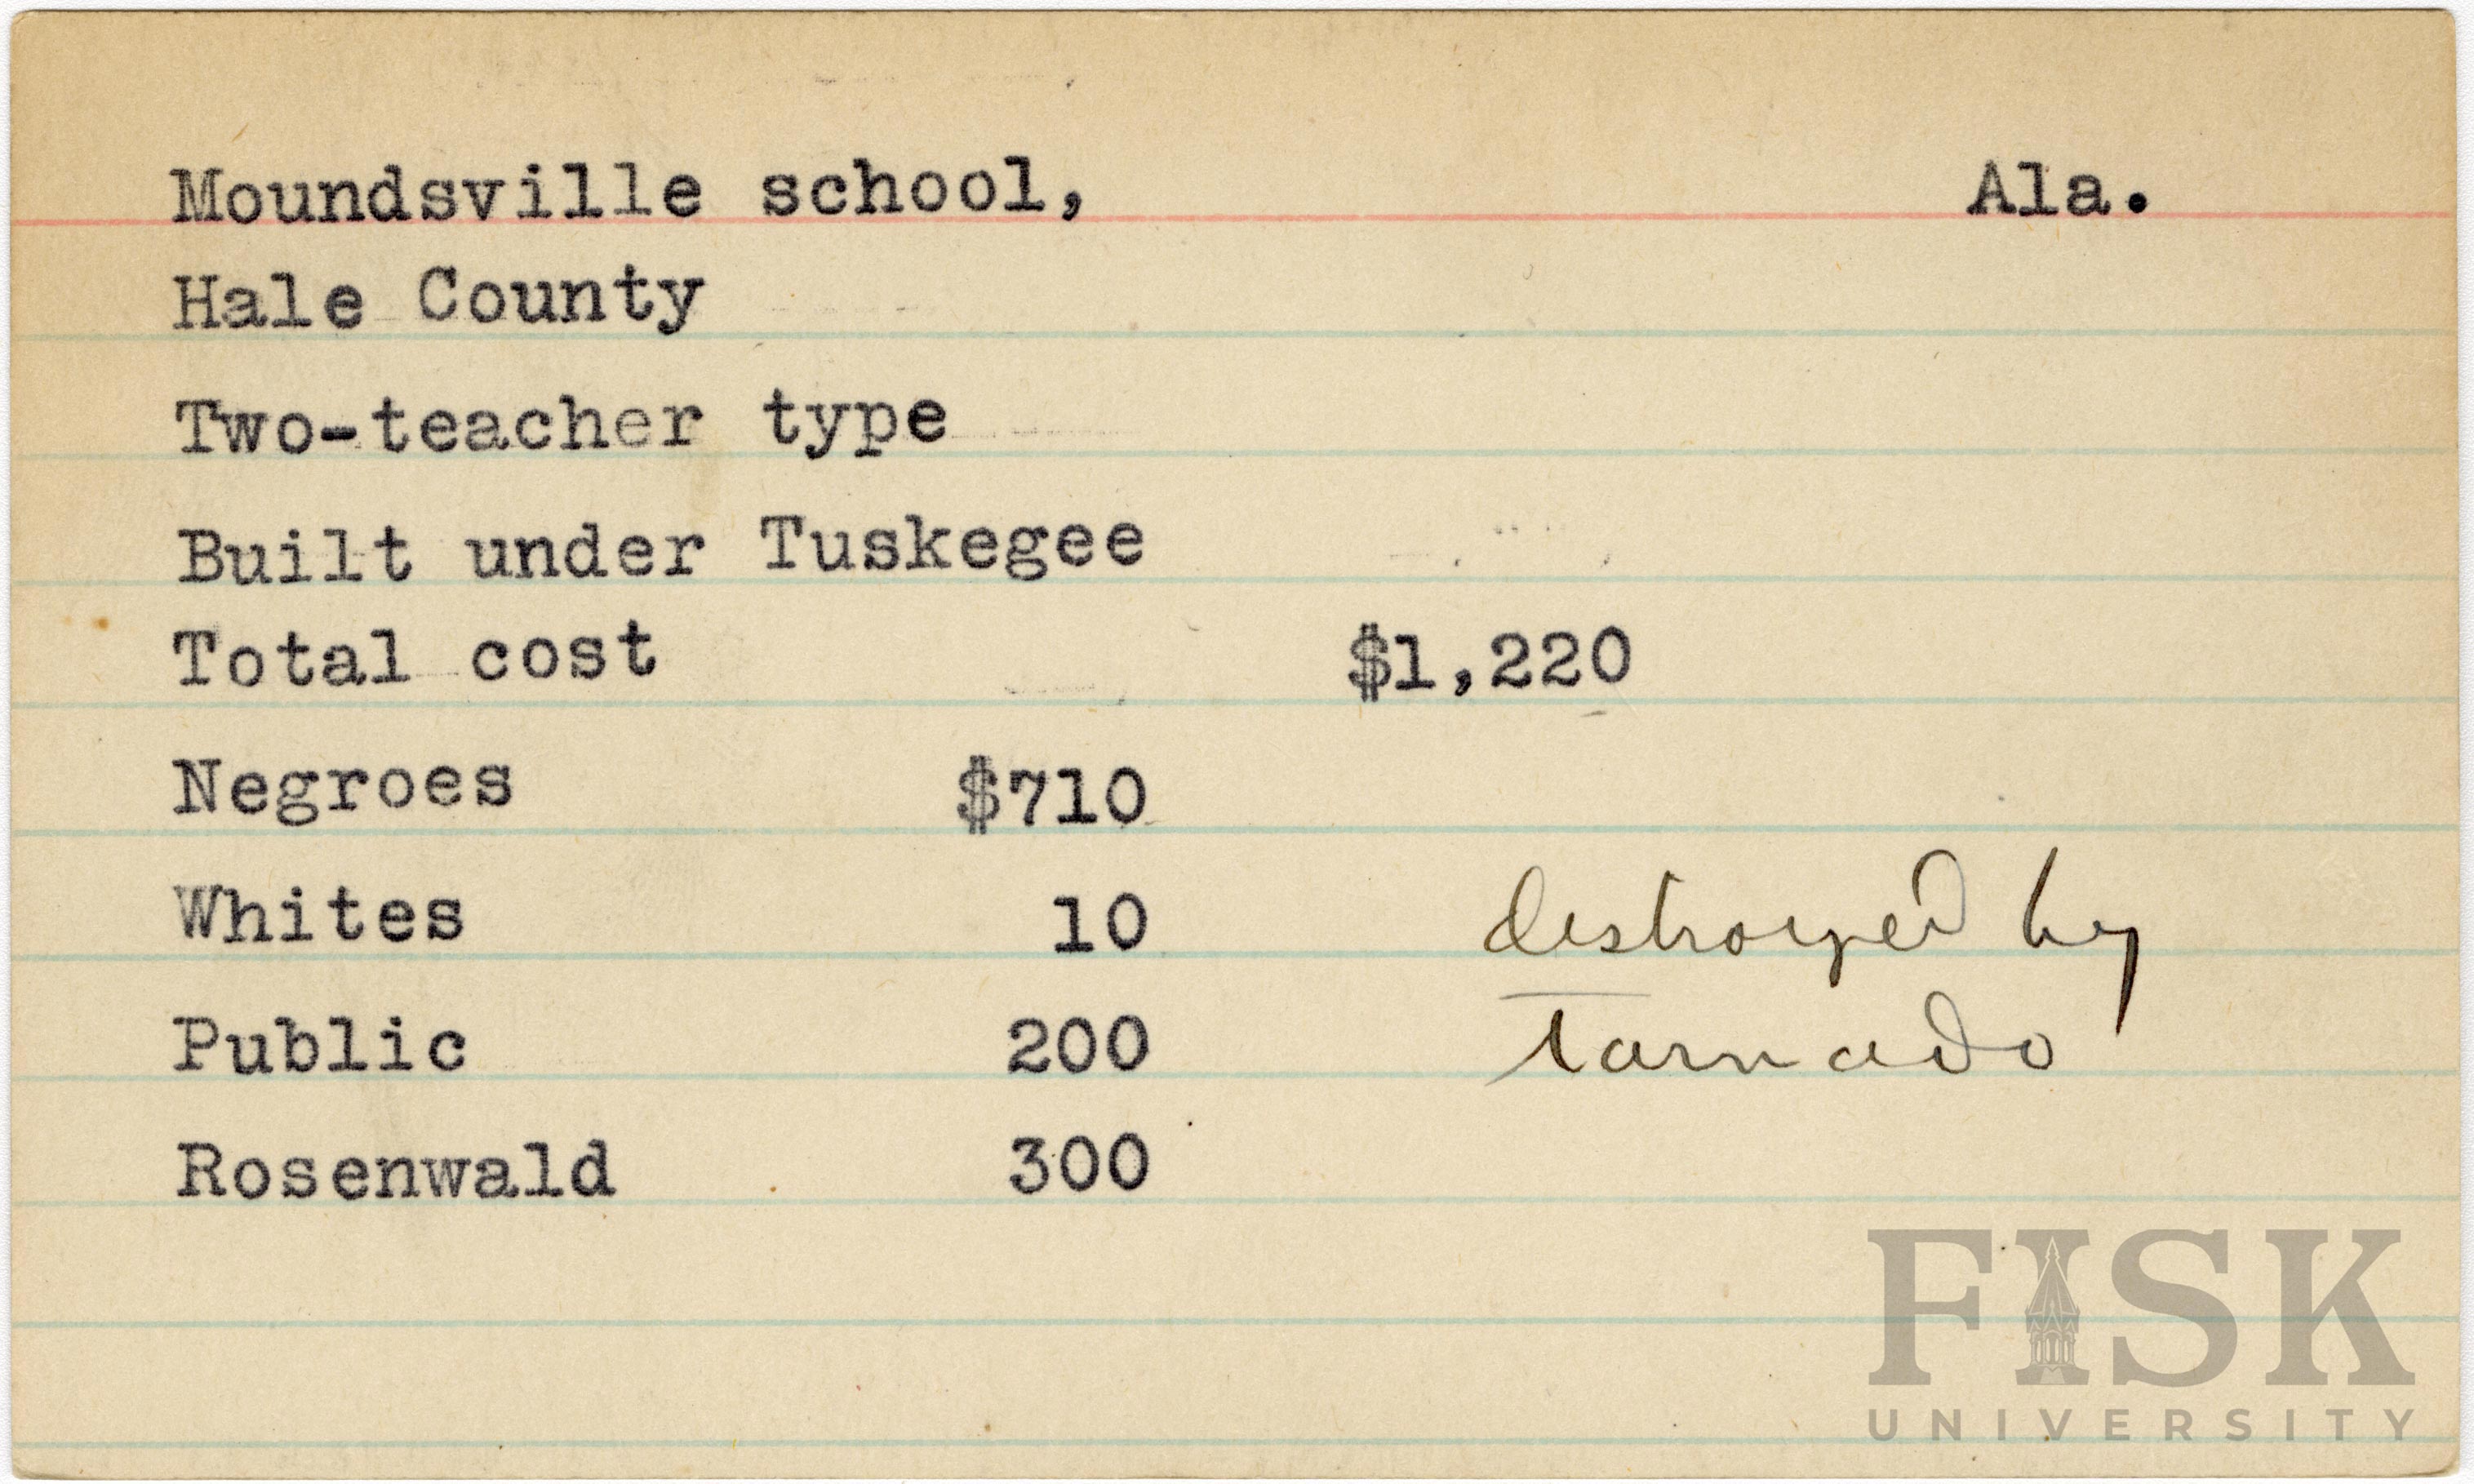 Moundsville school, Ala.
Hale County
Two-teacher type
Built under Tuskegee
Total cost $1,220
Negroes $710
Whites 10
destroyed by
Public 200
tornado
Rosenwald 300
FISK
UNIVERSITY